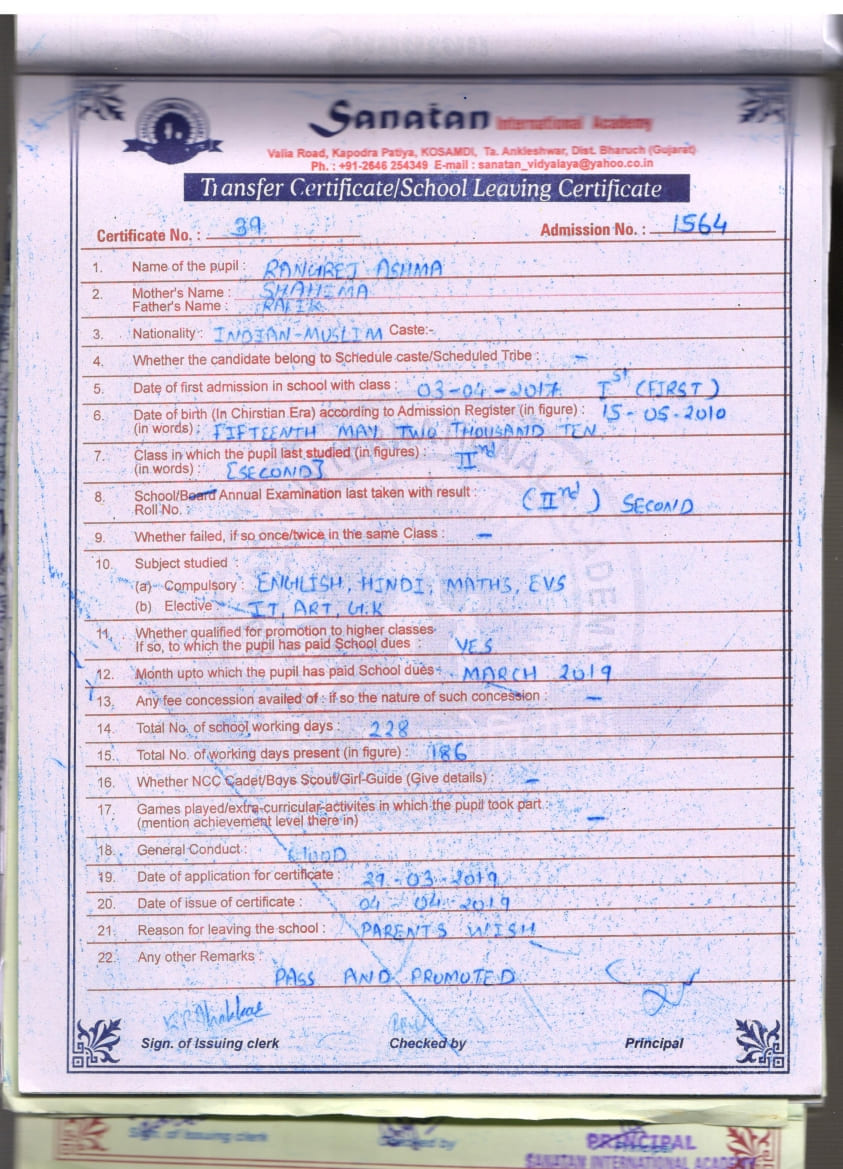 Sanatan International Academy
Valia Road, Kapodra Patiya, KOSAMDI, Ta. Ankleshwar, Dist. Bharuch (Gujarat)
Ph. : +91-2646 254349 E-mail : sanatan_vidyalaya@yahoo.co.in
Transfer Certificate/School Leaving Certificate
Certificate No. : 39 Admission No. : 1564
1. Name of the pupil : RANGREJ ASHMA
2. Mother's Name : SHAHEMA
Father's Name : RAFIK
3. Nationality : INDIAN-MUSLIM Caste:-
4. Whether the candidate belong to Schedule caste/Scheduled Tribe : -
5. Date of first admission in school with class : 03-04-2017 Ist (FIRST)
6. Date of birth (In Chirstian Era) according to Admission Register (in figure) : 15-05-2010
(in words) : FIFTEENTH MAY TWO THOUSAND TEN
7. Class in which the pupil last studied (in figures) : IInd
(in words) : [SECOND]
8. School/Board Annual Examination last taken with result : (IInd) SECOND
Roll No. :
9. Whether failed, if so once/twice in the same Class : -
10. Subject studied
(a) Compulsory : ENGLISH, HINDI, MATHS, EVS
(b) Elective IT, ART, G.K
11. Whether qualified for promotion to higher classes
If so, to which the pupil has paid School dues : YES
12. Month upto which the pupil has paid School dues MARCH 2019
13. Any fee concession availed of : if so the nature of such concession : -
14. Total No. of school working days : 228
15. Total No. of working days present (in figure) : 186
16. Whether NCC Cadet/Boys Scout/Girl-Guide (Give details) : -
17. Games played/extra-curricular-activites in which the pupil took part : -
(mention achievement level there in)
18. General Conduct : GOOD
19. Date of application for certificate : 29-03-2019
20. Date of issue of certificate : 04-04-2019
21. Reason for leaving the school : PARENTS WISH
22. Any other Remarks :
PASS AND PROMOTED
Sign. of Issuing clerk Checked by Principal
Sign. of Issuing clerk Checked by PRINCIPAL
SANATAN INTERNATIONAL ACADEMY